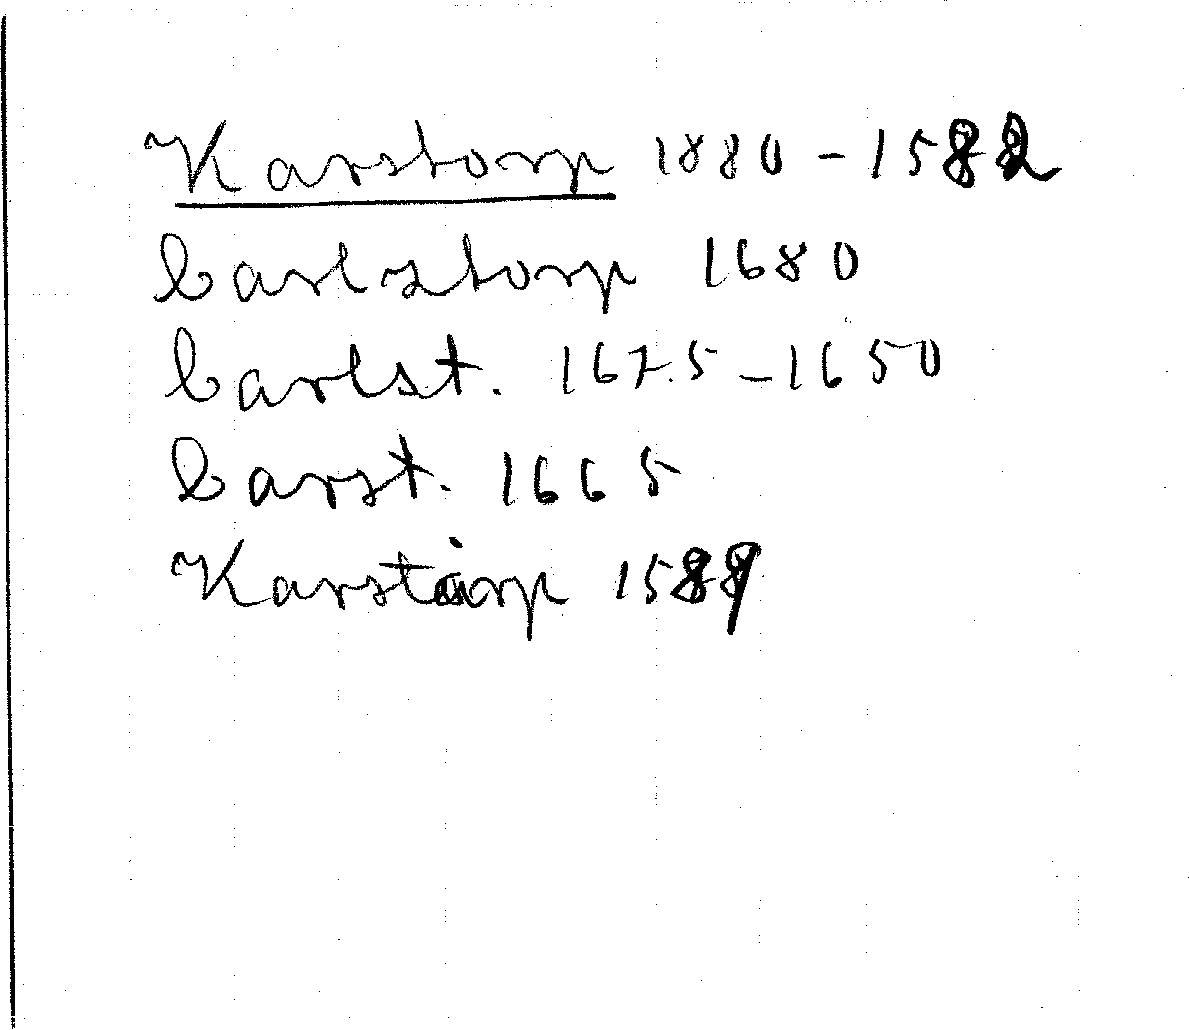 Karstorp 1880 - 1582
Carlstorp 1680
Carlst. 1675 - 1650
Carst. 1665
Karstårp 1589